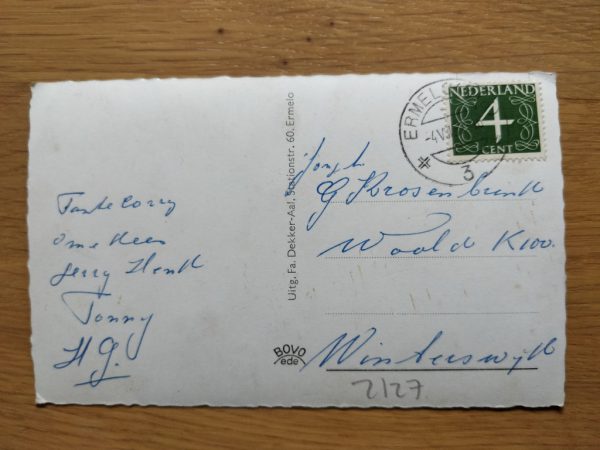 NEDERLAND
4
CENT
ERMELO
3
Tante Corry
Ome Kees
Gerry Henk
Tonny
H G.
Uitg. Fa. Dekker-Aal, Stationstr. 60, Ermelo
BOVO
ede
Jongh
G Krosenbrink
Woold K100.
Winterswijk
2127